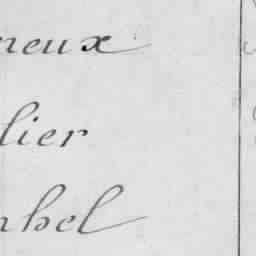 neux
lier
nhel